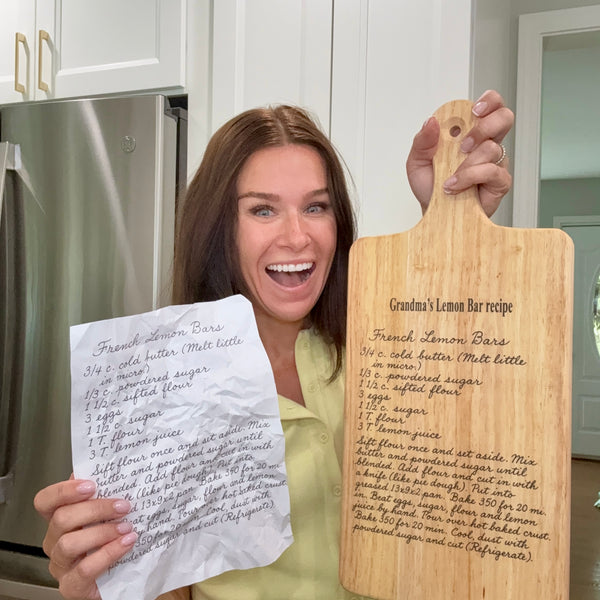 French Lemon Bars
3/4 c. cold butter (Melt little
in micro.)
1/3 c. powdered sugar
1 1/2 c. sifted flour
3 eggs
1 1/2 c. sugar
1 T. flour
3 T lemon juice
Sift flour once and set aside. Mix
butter and powdered sugar until
blended. Add flour and cut in with
a knife (like pie dough). Put into
13x9x2 pan. Bake 350 for 20 mi
eat eggs, sugar, flour and lemon
hand. Pour over hot baked crust.
350 for 20 min. Cool, dust with
powdered sugar and cut (Refrigerate).
Grandma's Lemon Bar recipe
French Lemon Bars
3/4 c. cold butter (Melt little
in micro.)
1/3 c. powdered sugar
1 1/2 c. sifted flour
3 eggs
1 1/2 c. sugar
1 T. flour
3 T lemon juice
Sift flour once and set aside. Mix
butter and powdered sugar until
blended. Add flour and cut in with
a knife (like pie dough). Put into
greased 13x9x2 pan. Bake 350 for 20 mi
in. Beat eggs, sugar, flour and lemon
juice by hand. Pour over hot baked crust.
Bake 350 for 20 min. Cool, dust with
powdered sugar and cut (Refrigerate).